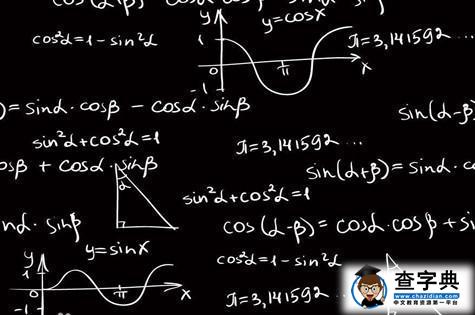 cos(α-β)
y
y=cosx
cos²α=1-sin²α
1
π=3,141592 ...
0
π
x
-1
)=sinα·cosβ - cosα·sinβ
sin(α-β)
sin²α+cos²α=1
π=3,141592 ...
osβ + cosα·sinβ
sin(α+β)=sinα·c
α
sin²α+cos²α=1
nα·sinβ
cos(α-β)= cosα·cosβ + si
y
y=sinx
cos²α=1-sin²α
1
0
π
x
-1
π=3,141592 ...
查字典
www.chazidian.com
中文教育资源第一平台